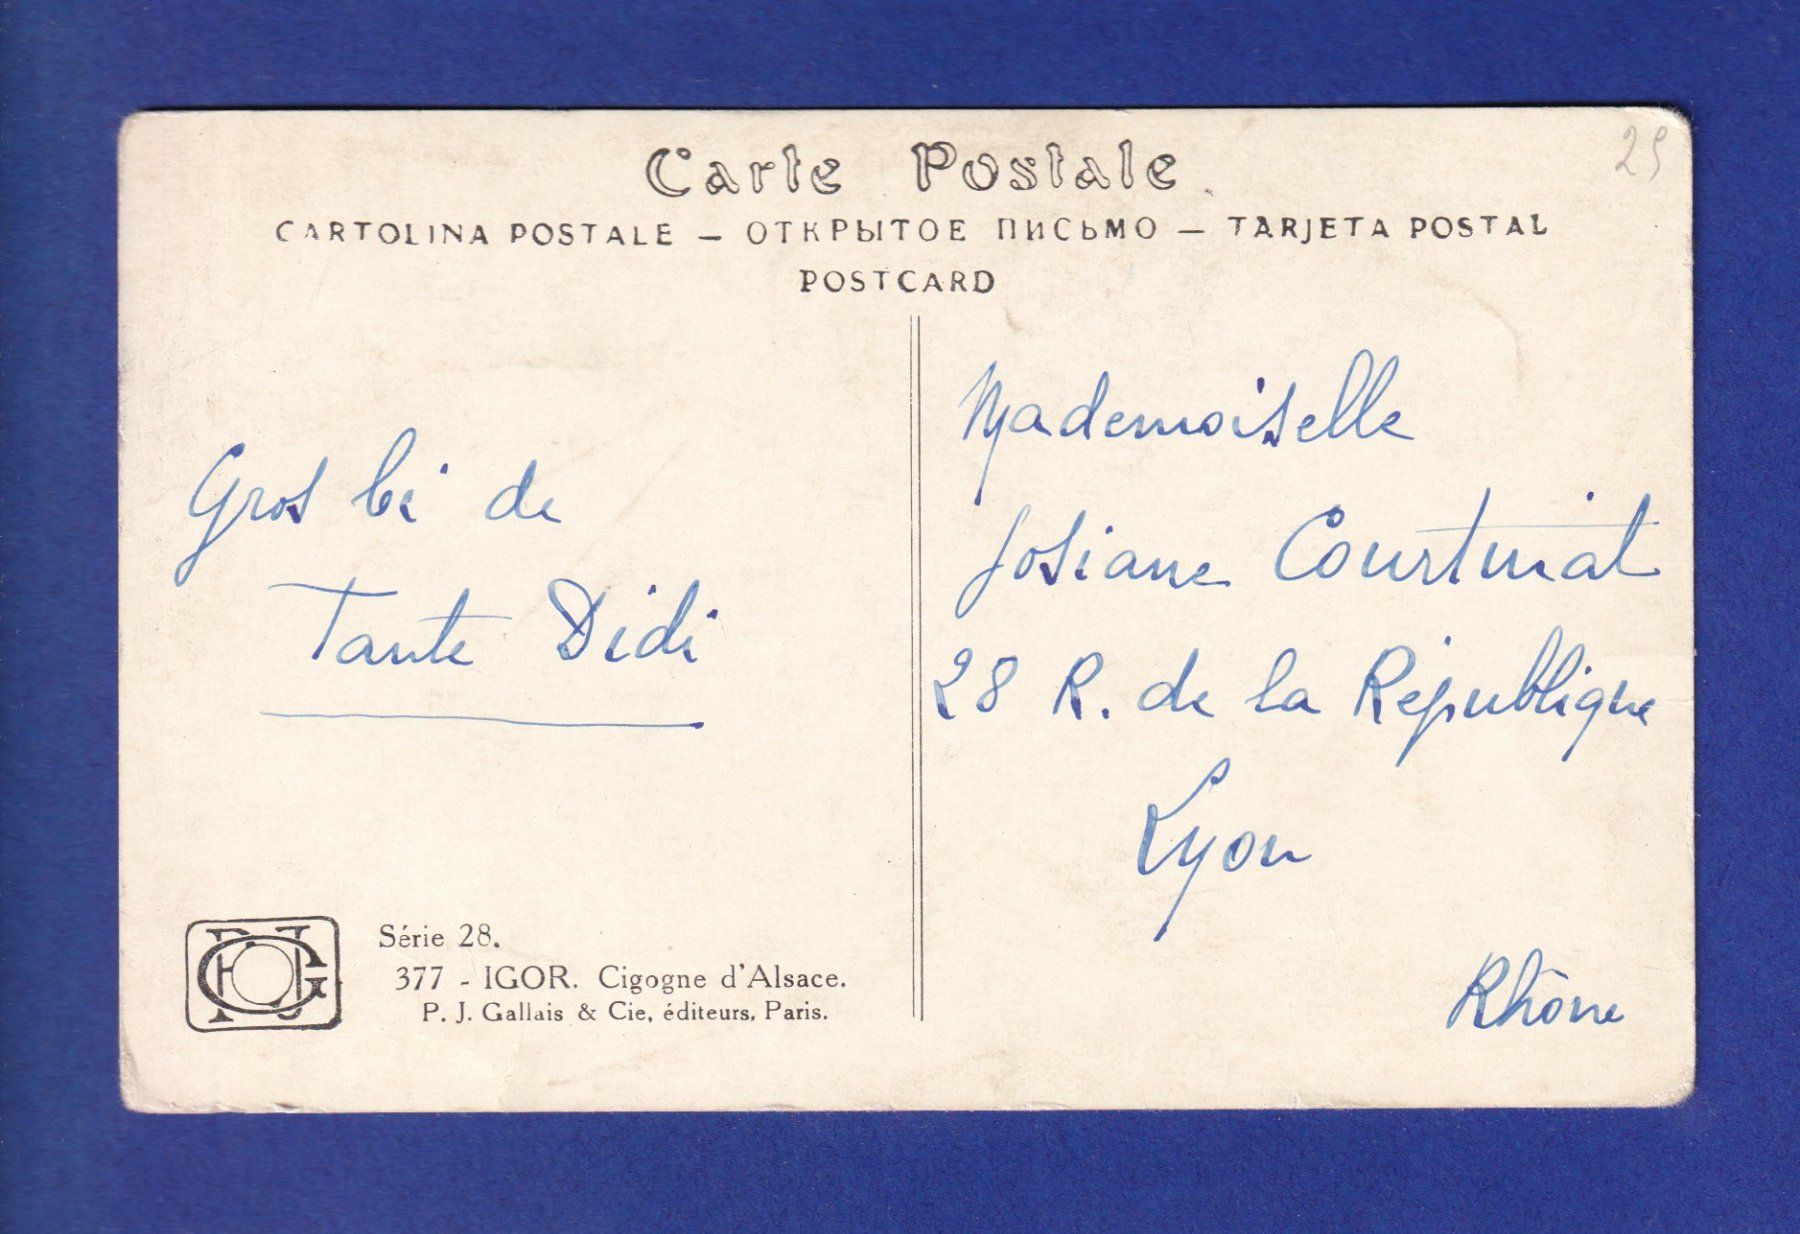 Carte Postale
CARTOLINA POSTALE — ОТКРЫТОЕ ПИСЬМО — TARJETA POSTAL
POSTCARD
25
Gros bi de
Tante Didi
Mademoiselle
Josiane Courtinat
28 R. de la République
Lyon
Rhône
Série 28.
377 - IGOR. Cigogne d'Alsace.
P. J. Gallais & Cie, éditeurs, Paris.